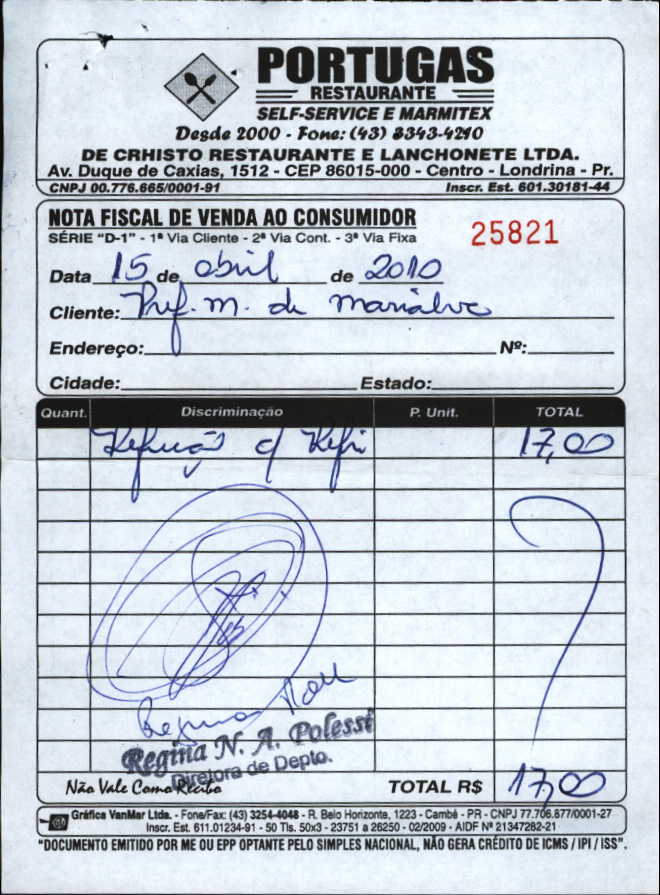 PORTUGAS
RESTAURANTE
SELF-SERVICE E MARMITEX
Desde 2000 - Fone: (43) 3343-4210
DE CRHISTO RESTAURANTE E LANCHONETE LTDA.
Av. Duque de Caxias, 1512 - CEP 86015-000 - Centro - Londrina - Pr.
CNPJ 00.776.665/0001-91 Inscr. Est. 601.30181-44
NOTA FISCAL DE VENDA AO CONSUMIDOR
SÉRIE "D-1" - 1ª Via Cliente - 2ª Via Cont. - 3ª Via Fixa
25821
Data 15 de abril de 2010
Cliente: Pref. M. de Marialva
Endereço: Nº:
Cidade: Estado:
Quant. Discriminação P. Unit. TOTAL
Refeição c/ Refri 17,00
Regina
Regina N. A. Polessi
Diretora de Depto.
Não Vale Como Recibo TOTAL R$ 17,00
Gráfica VanMar Ltda. - Fone/Fax: (43) 3254-4048 - R. Belo Horizonte, 1223 - Cambé - PR - CNPJ 77.706.677/0001-27
Inscr. Est. 611.01234-91 - 50 Tls. 50x3 - 23751 a 26250 - 02/2009 - AIDF Nº 21347282-21
"DOCUMENTO EMITIDO POR ME OU EPP OPTANTE PELO SIMPLES NACIONAL, NÃO GERA CRÉDITO DE ICMS / IPI / ISS".